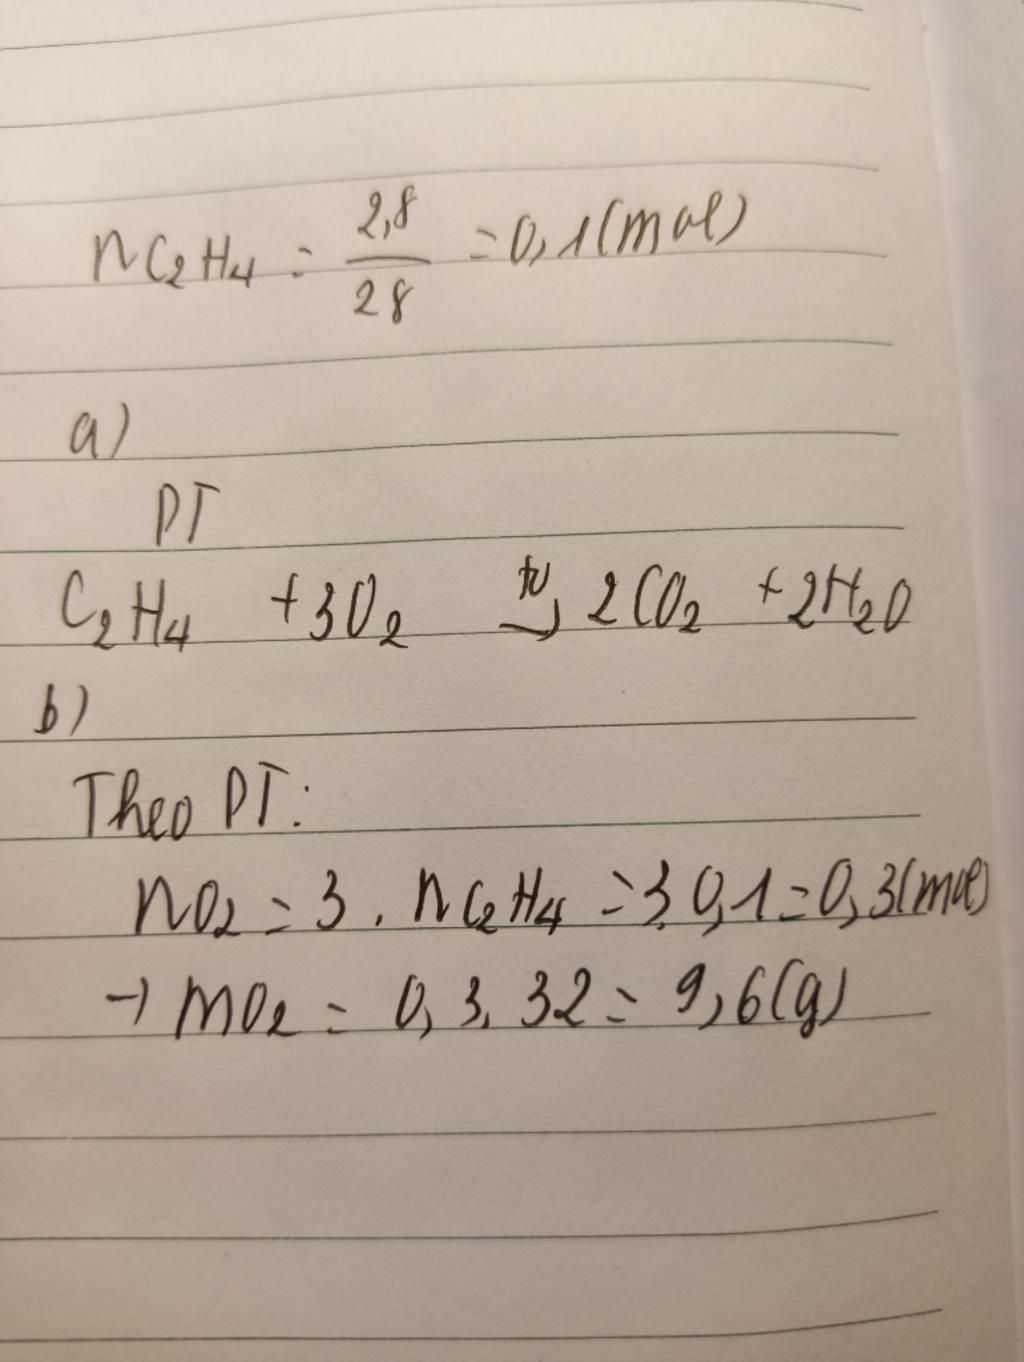 nC2H4 = 2,8/28 = 0,1(mol)
a)
PT
C2H4 + 3O2 t° → 2CO2 + 2H2O
b)
Theo PT:
nO2 = 3 . nC2H4 = 3.0,1 = 0,3(mol)
→ mO2 = 0,3.32 = 9,6(g)